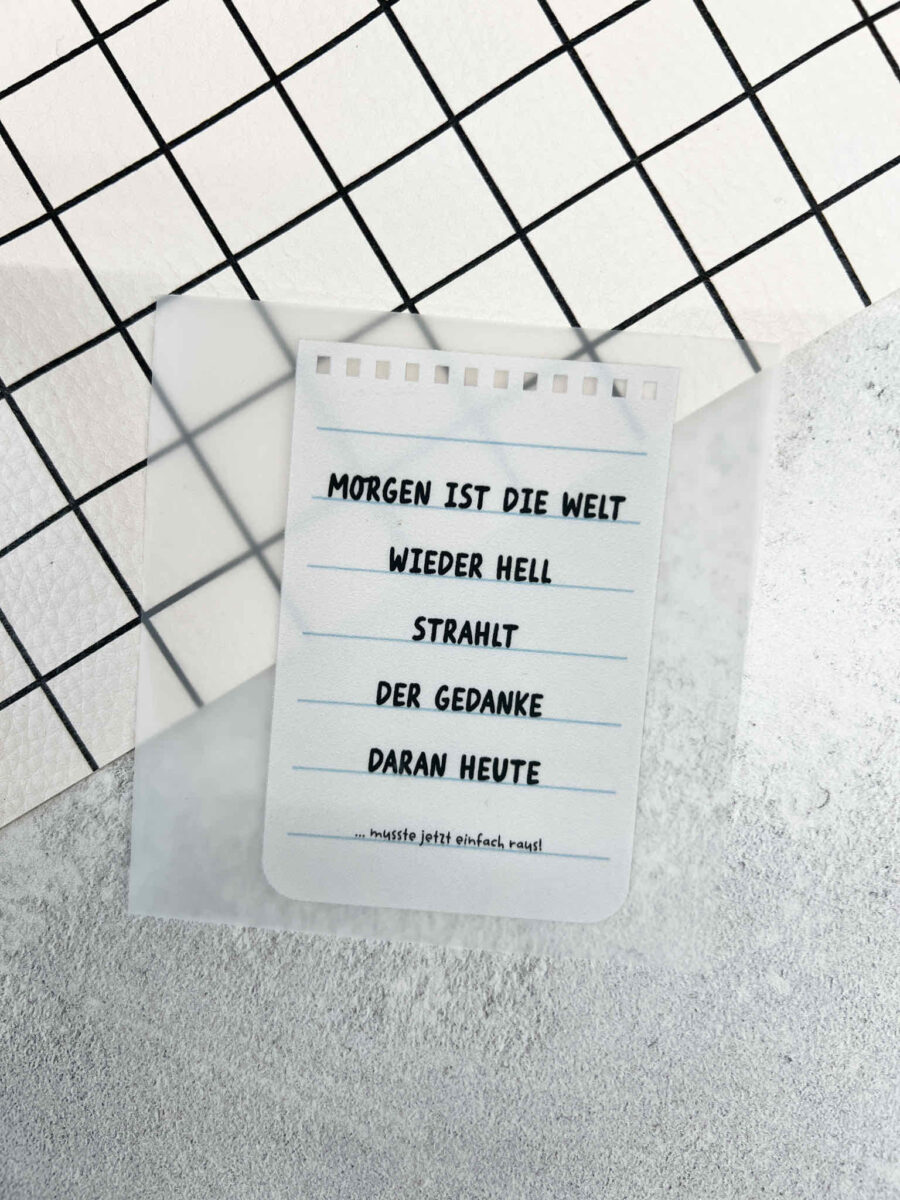 MORGEN IST DIE WELT
WIEDER HELL
STRAHLT
DER GEDANKE
DARAN HEUTE
... musste jetzt einfach raus!